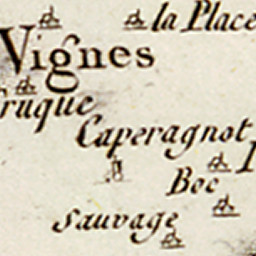 la Place
Vignes
Caperagnot
Bec
Sauvage